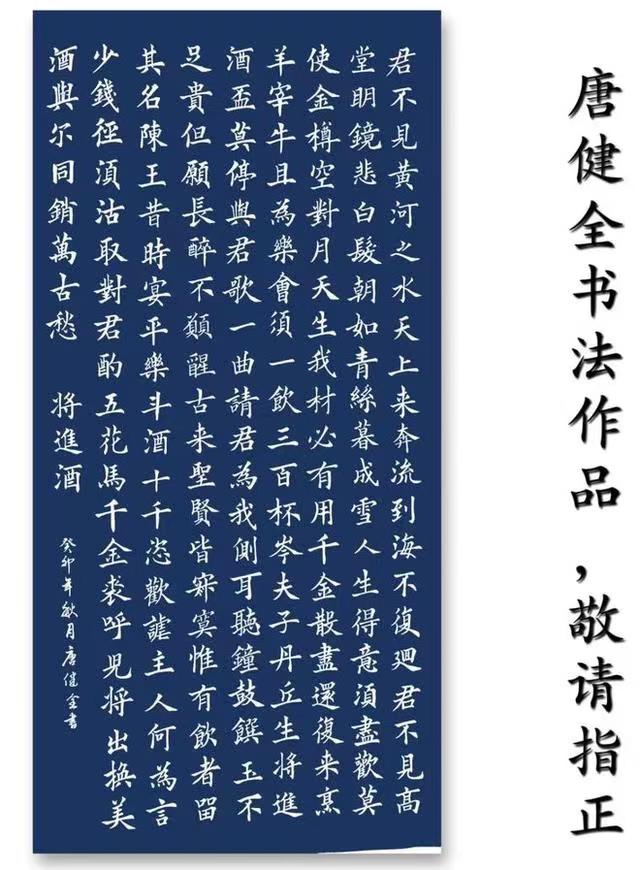 唐健全书法作品，敬请指正
君不見黄河之水天上来奔流到海不復迴君不見髙
堂明鏡悲白髮朝如青絲暮成雪人生得意湏盡歡莫
使金樽空對月天生我材必有用千金散盡還復来烹
羊宰牛且為樂會須一飲三百杯岑夫子丹丘生将進
酒盃莫停與君歌一曲請君為我側耳聽鐘鼓饌玉不
足貴但願長醉不願醒古来聖賢皆寂寞惟有飲者留
其名陳王昔時宴平樂斗酒十千恣歡謔主人何為言
少錢徑湏沽取對君酌五花馬千金裘呼兒将出換美
酒與尔同銷萬古愁 将進酒 癸卯年秋月唐健全書